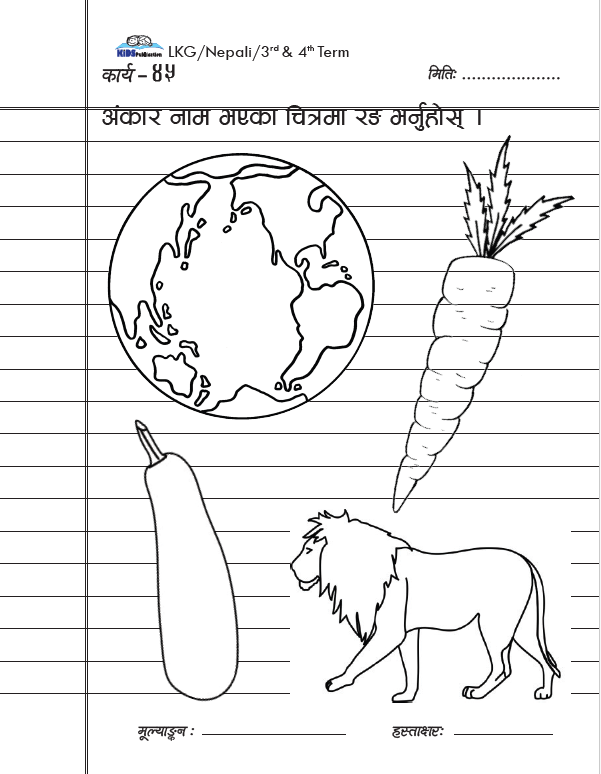 KIDS Publication LKG/Nepali/3rd & 4th Term
कार्य – ४५ मितिः ....................
अंकार नाम भएका चित्रमा रङ भर्नुहोस् ।
मूल्याङ्कन : हस्ताक्षरः